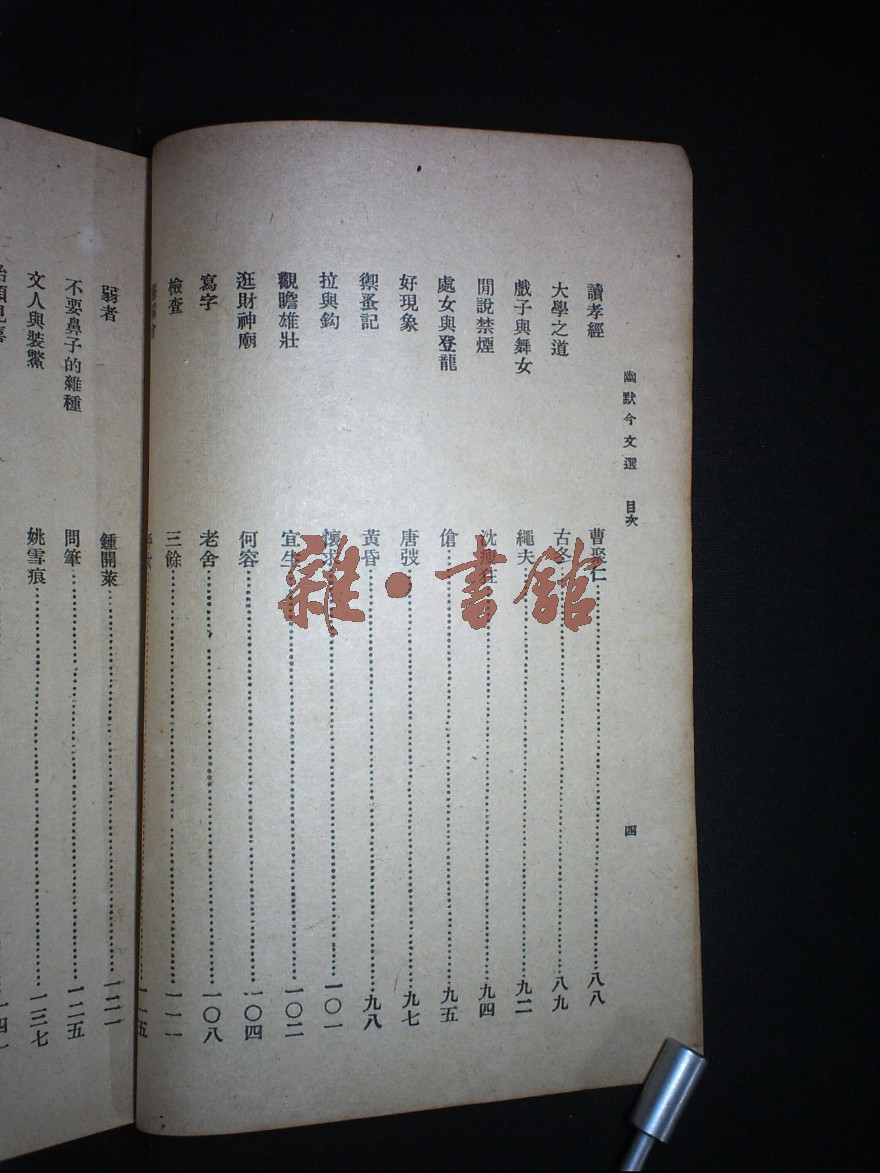 幽默今文選 目次 四
讀孝經 曹聚仁 八八
大學之道 古冬 八九
戲子與舞女 繩夫 九二
閒說禁煙 沈瘦狂 九四
處女與登龍 傖 九五
好現象 唐弢 九七
禦蚤記 黃昏 九八
拉與鈎 懷求 一〇一
觀瞻雄壯 宜生 一〇二
逛財神廟 何容 一〇四
寫字 老舍 一〇八
檢查 三餘 一一一
一一五
弱者 鍾開萊 一二一
不要鼻子的雜種 問筆 一二五
文人與裝鱉 姚雪痕 一三七
雜·書舘